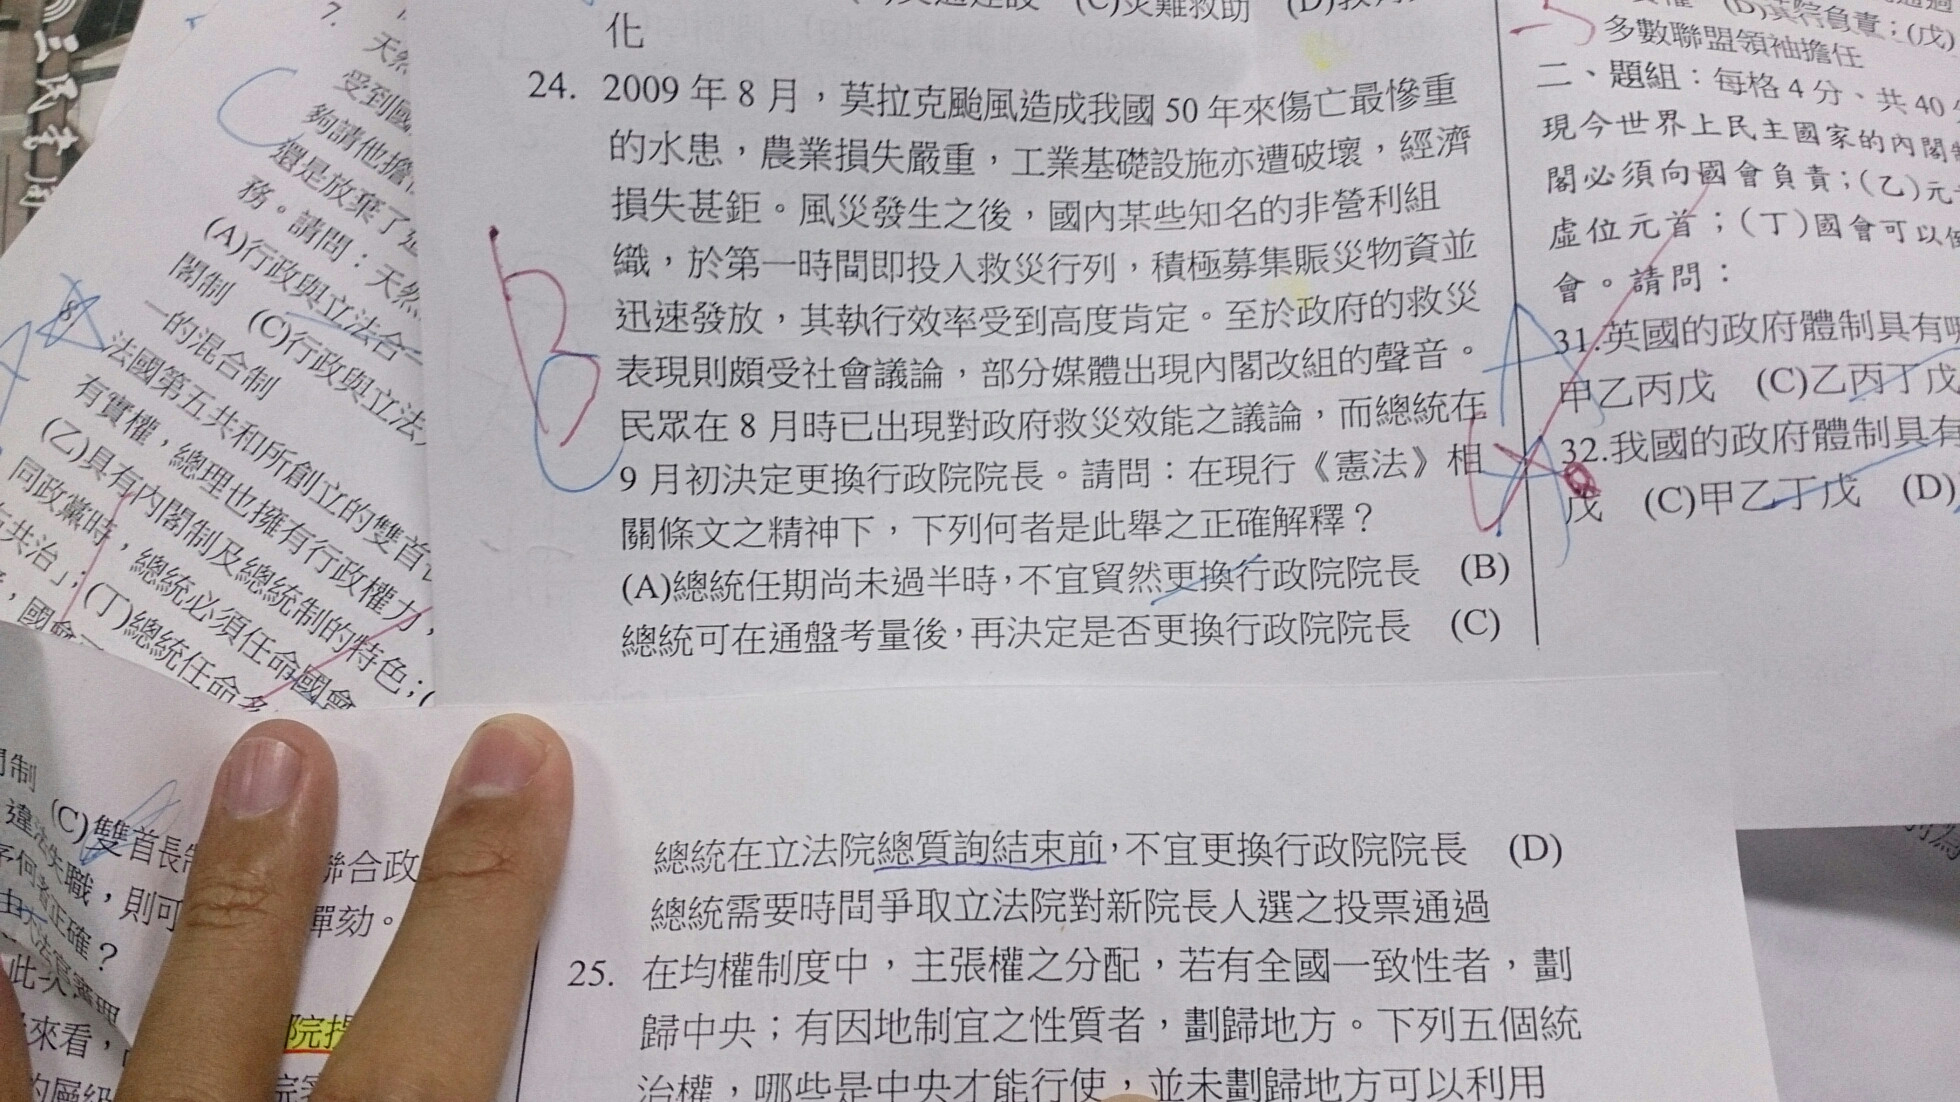 化
24. 2009 年 8 月，莫拉克颱風造成我國 50 年來傷亡最慘重
的水患，農業損失嚴重，工業基礎設施亦遭破壞，經濟
損失甚鉅。風災發生之後，國內某些知名的非營利組
織，於第一時間即投入救災行列，積極募集賑災物資並
迅速發放，其執行效率受到高度肯定。至於政府的救災
表現則頗受社會議論，部分媒體出現內閣改組的聲音。
民眾在 8 月時已出現對政府救災效能之議論，而總統在
9 月初決定更換行政院院長。請問：在現行《憲法》相
關條文之精神下，下列何者是此舉之正確解釋？
(A)總統任期尚未過半時，不宜貿然更換行政院院長 (B)
總統可在通盤考量後，再決定是否更換行政院院長 (C)
總統在立法院總質詢結束前，不宜更換行政院院長 (D)
總統需要時間爭取立法院對新院長人選之投票通過
25. 在均權制度中，主張權之分配，若有全國一致性者，劃
歸中央；有因地制宜之性質者，劃歸地方。下列五個統
治權，哪些是中央才能行使，並未劃歸地方可以利用
B
7.
天然
受到國
夠請他擔
還是放棄了
務。請問：天然
(A)行政與立法合一
閣制 (C)行政與立法
一的混合制
8.
法國第五共和所創立的雙首
有實權，總理也擁有行政權力，
(乙)具有內閣制及總統制的特色；(
同政黨時，總統必須任命國會
共治」；(丁)總統任命多
，國會
C
閣制
(C)雙首長制
聯合政
違法失職，則可
彈劾。
何者正確？
此次
來看，
院提
多數聯盟領袖擔任
二、題組：每格 4 分、共 40
現今世界上民主國家的內閣制
閣必須向國會負責；(乙)元
虛位元首；(丁)國會可以
會。請問：
31.英國的政府體制具有
甲乙丙戊 (C)乙丙丁戊
32.我國的政府體制具有
戊 (C)甲乙丁戊 (D)